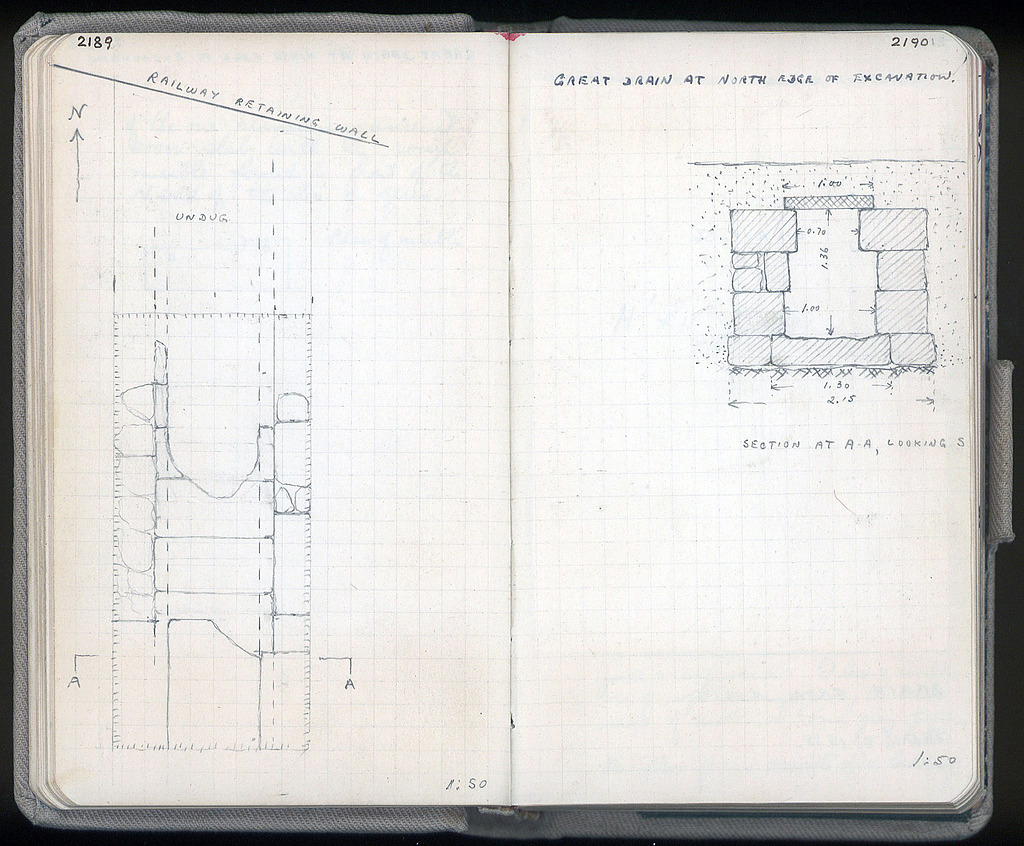 2189
RAILWAY RETAINING WALL
N
UNDUG
A
A
1:50
2190
GREAT DRAIN AT NORTH EDGE OF EXCAVATION.
1.00
0.70
1.36
1.00
1.30
2.15
SECTION AT A-A, LOOKING S
1:50